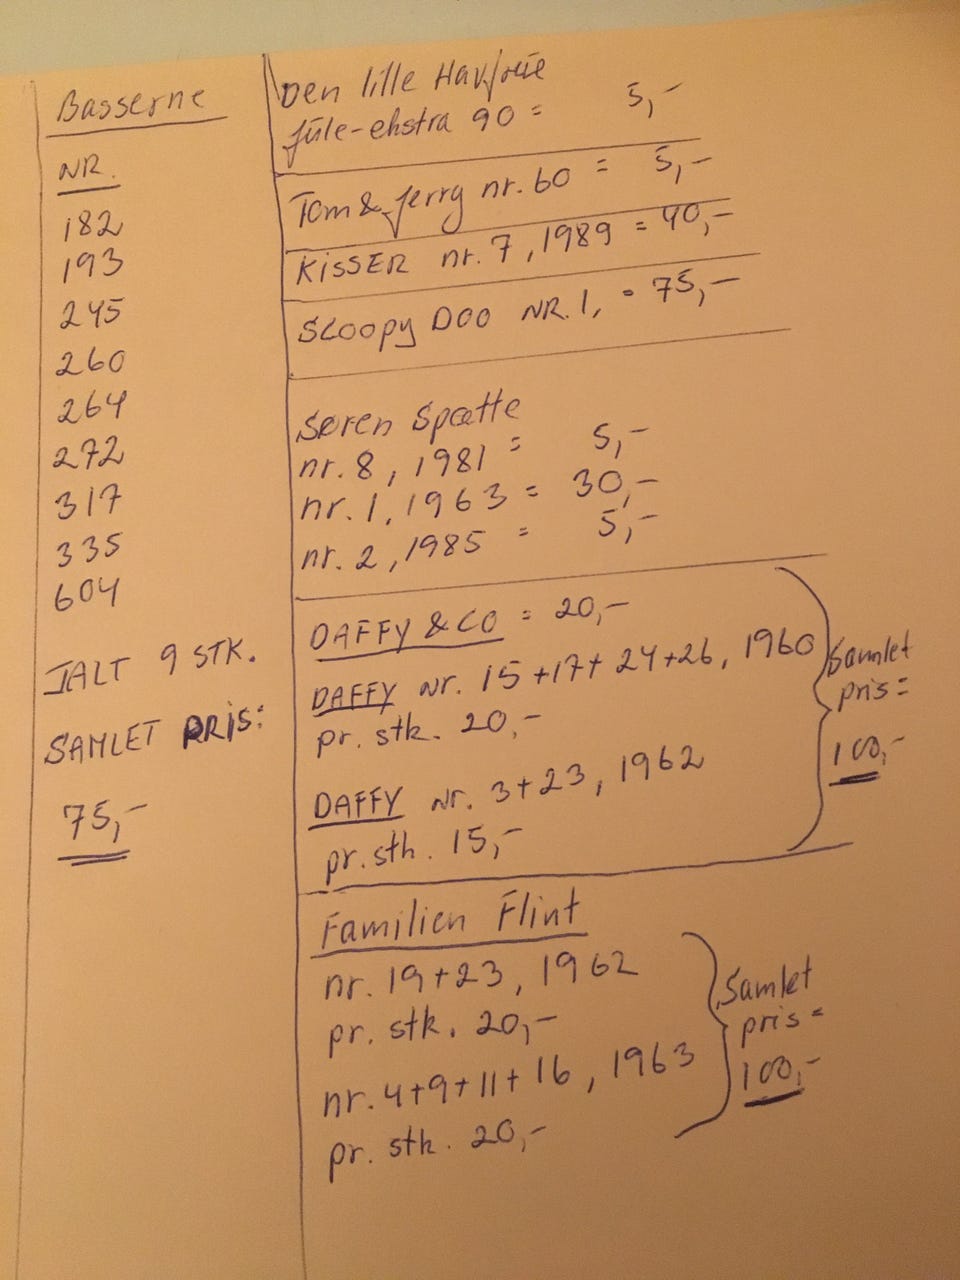 Basserne
NR.
182
193
245
260
264
272
317
335
604
IALT 9 STK.
SAMLET PRIS:
75,-
Den lille Havfrue
jule-ekstra 90 = 5,-
Tom & Jerry nr. 60 = 5,-
KISSER nr. 7, 1989 = 40,-
SCOOPY DOO NR. 1, = 75,-
Søren Spætte
nr. 8, 1981 = 5,-
nr. 1, 1963 = 30,-
nr. 2, 1985 = 5,-
DAFFY & CO = 20,-
DAFFY nr. 15+17+24+26, 1960
pr. stk. 20,-
DAFFY nr. 3+23, 1962
pr. stk. 15,-
Samlet
pris =
100,-
Familien Flint
nr. 19+23, 1962
pr. stk. 20,-
nr. 4+9+11+16, 1963
pr. stk. 20,-
Samlet
pris =
100,-